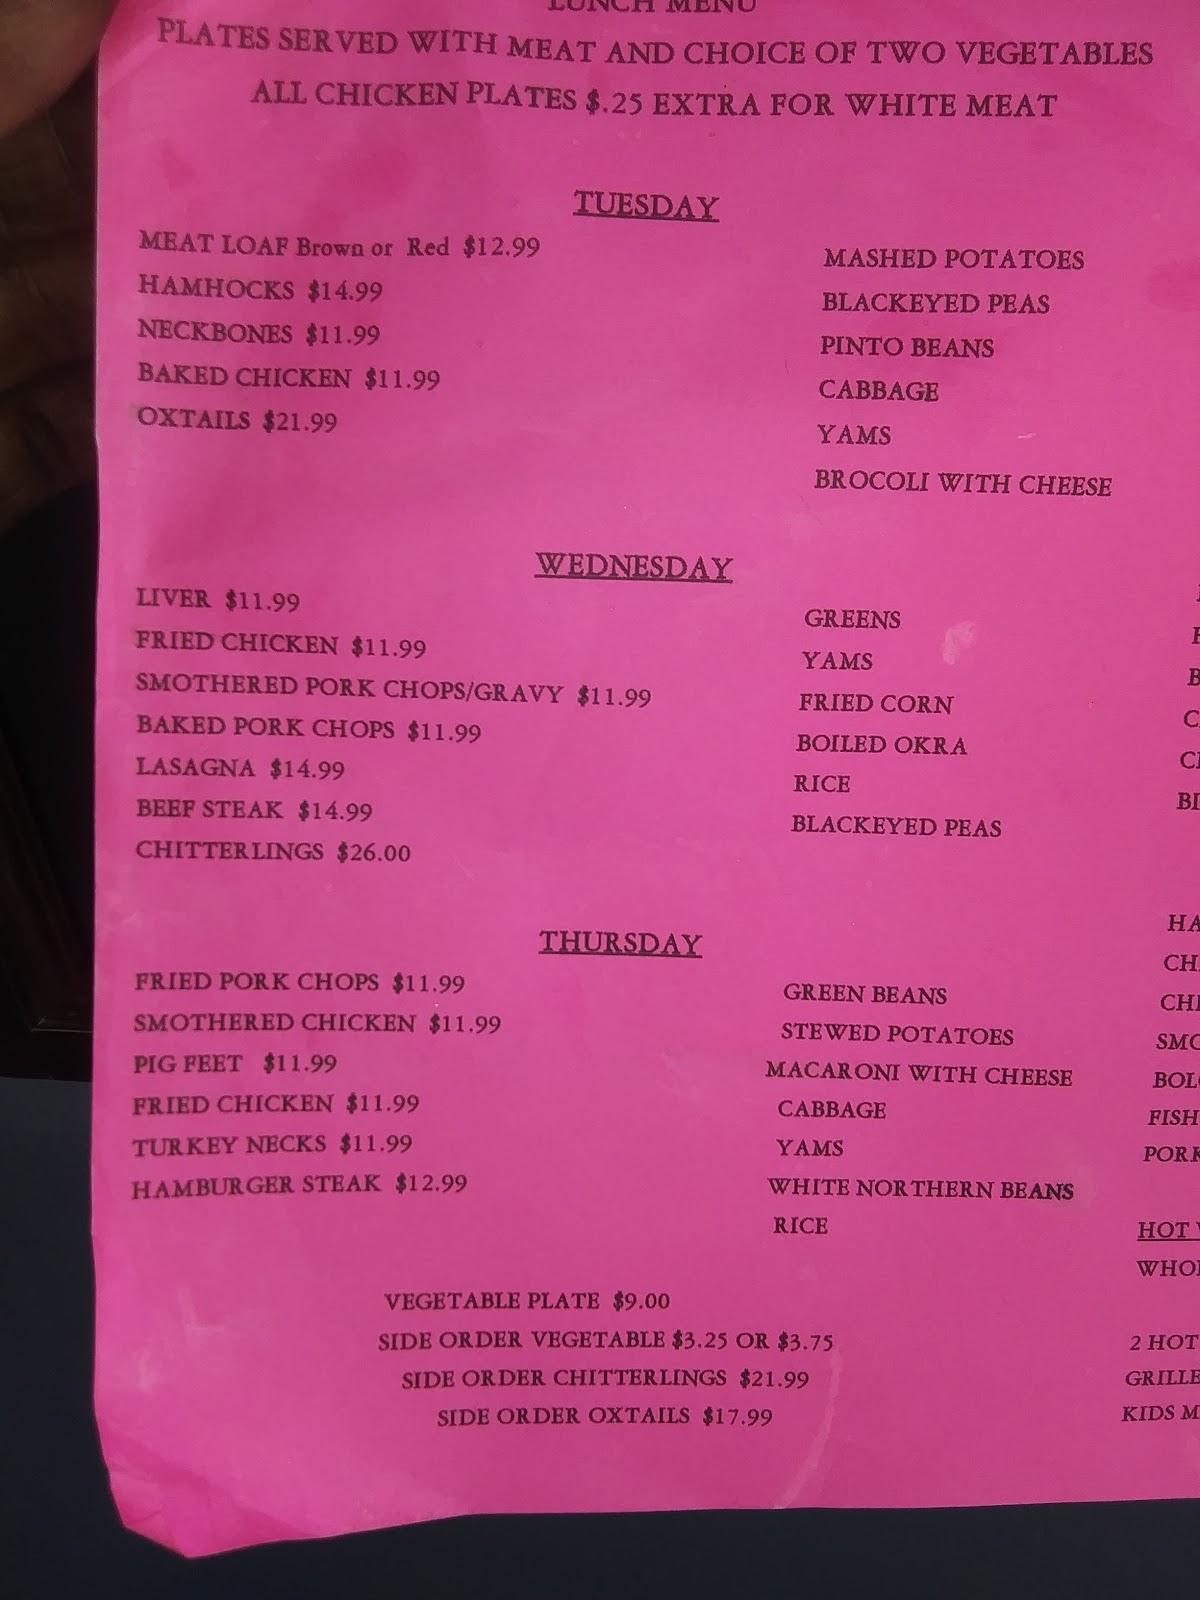 LUNCH MENU
PLATES SERVED WITH MEAT AND CHOICE OF TWO VEGETABLES
ALL CHICKEN PLATES $.25 EXTRA FOR WHITE MEAT
TUESDAY
MEAT LOAF Brown or Red $12.99
HAMHOCKS $14.99
NECKBONES $11.99
BAKED CHICKEN $11.99
OXTAILS $21.99
MASHED POTATOES
BLACKEYED PEAS
PINTO BEANS
CABBAGE
YAMS
BROCOLI WITH CHEESE
WEDNESDAY
LIVER $11.99
FRIED CHICKEN $11.99
SMOTHERED PORK CHOPS/GRAVY $11.99
BAKED PORK CHOPS $11.99
LASAGNA $14.99
BEEF STEAK $14.99
CHITTERLINGS $26.00
GREENS
YAMS
FRIED CORN
BOILED OKRA
RICE
BLACKEYED PEAS
THURSDAY
FRIED PORK CHOPS $11.99
SMOTHERED CHICKEN $11.99
PIG FEET $11.99
FRIED CHICKEN $11.99
TURKEY NECKS $11.99
HAMBURGER STEAK $12.99
GREEN BEANS
STEWED POTATOES
MACARONI WITH CHEESE
CABBAGE
YAMS
WHITE NORTHERN BEANS
RICE
VEGETABLE PLATE $9.00
SIDE ORDER VEGETABLE $3.25 OR $3.75
SIDE ORDER CHITTERLINGS $21.99
SIDE ORDER OXTAILS $17.99
FISH
PORK
HOT
2 HOT
KIDS